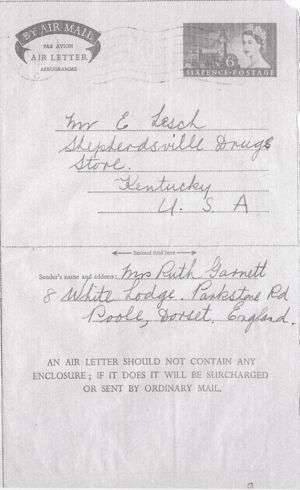 BY AIR MAIL
PAR AVION
AIR LETTER
AEROGRAMME
6
SIXPENCE·POSTAGE
Mr E Lesch
Shepherdsville Drugs
Store.
Kentucky
U. S A
Second fold here
Sender's name and address: Mrs Ruth Garnett
8 White Lodge. Parkstone Rd
Poole, Dorset. England.
AN AIR LETTER SHOULD NOT CONTAIN ANY
ENCLOSURE; IF IT DOES IT WILL BE SURCHARGED
OR SENT BY ORDINARY MAIL.